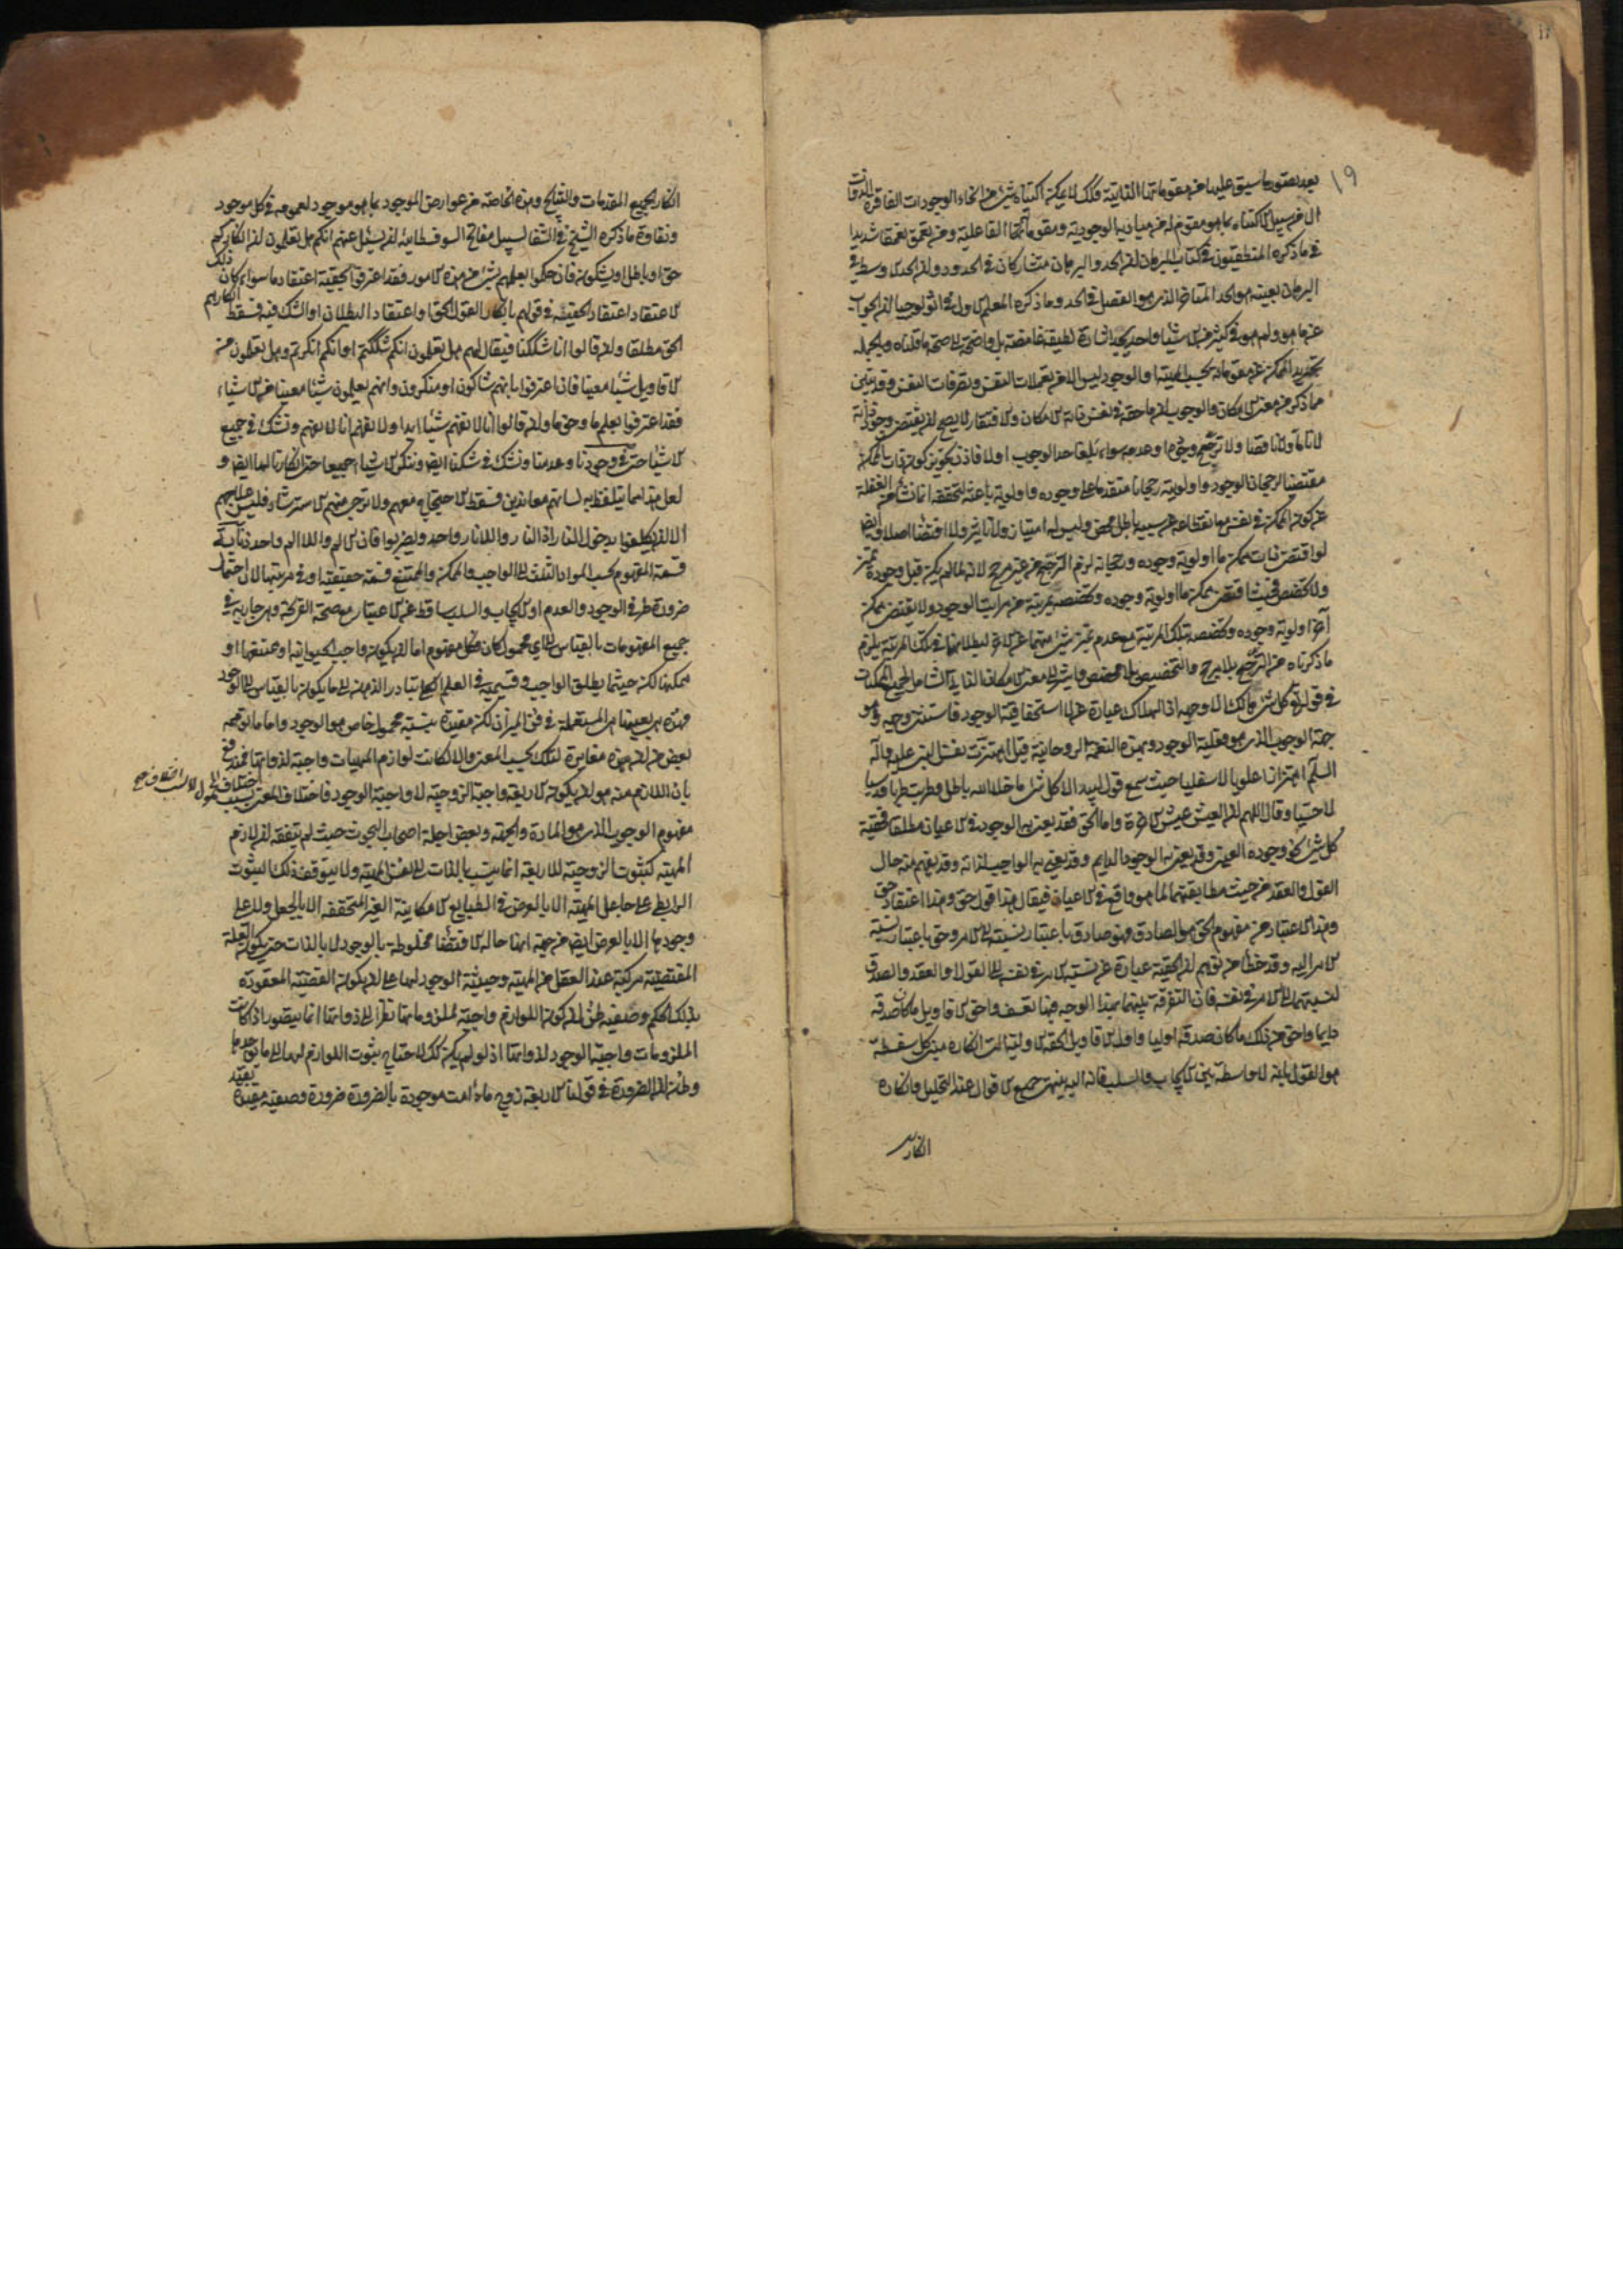 ١٩
بعد تصور ما سبق عليها من مقوماتها الذاتية فكذلك لا يمكن اكتناه شيء من انحاء الوجودات الفاقرة الذوات
الا من سبيل الاكتناه بما هو مقوم له من مباديه الوجودية ومقوماتها الفاعلية ومن تعمق تعمقا شديدا
في ما ذكره المنطقيون في كتاب البرهان ان الحد والبرهان متشاركان في الحدود وان الحد الاوسط في
البرهان بعينه هو الحد المتاخر الذي هو الفصل في الحد وما ذكره المعلم الاول في اثولوجيا ان الجواب
عن ما هو ولم هو في كثير من الاشياء واحد يجد اشارة لطيفة غامضة بل واضحة الى صحة ما قلناه وبالجملة
تجريد الممكن عن مقومانه بحسب المهية او الوجود ليس الا من تعملات النفس وتصرفات النفس وقد تبين
مما ذكر من معنى الامكان والوجوب ان ما حقه في نفس ذاته الامكان والافتقار لا يصح ان يقتضي وجود ذاته
لا تاما ولا ناقصا ولا ترجح وجود ما وعدمه سواء بلغا حد الوجوب او لا فاذن تجويز كون ذات الممكن
مقتضيا لرجحان الوجود واولويته رجحانا متقدما على وجوده واولوية باعثة لتحققه انما نشأ من الغفلة
عن كون الممكن في نفس مع انقطاعه عن سببه باطل محض وليس له امتياز ولا تاثير ولا اقتضاء اصلا وايضا
لو اقتضى ذات ممكن ما اولوية وجوده ورجحانه لزم الترجح من غير مرجح لانه لما لم يكن قبل وجوده تميز
ولا تخصص فحيث اقتضى ممكن ما اولوية وجوده وتخصصه بمرتبة من مراتب الوجود ولا يقتضي ممكن
آخر اولوية وجوده وتخصصه بتلك المرتبة مع عدم تميز شيء منهما عن الاخر لبطلانهما في تلك المرتبة يلزم
ما ذكرناه من الترجح بلا مرجح والتخصيص بلا مخصص وليشر الى معنى الامكان الذاتي الشامل لجميع الممكنات
في قوله كل شيء هالك الا وجهه اذ الهلاك عبارة عن لا استحقاقية الوجود فاستثنى وجهه وهو
جهة الوجوب الذي هو فعلية الوجود وبهذه النغمة الروحانية قيل اهتزت نفس النبي عليه وآله
السلام اهتزازا علويا لا سفليا حيث سمع قول لبيد الا كل شيء ما خلا الله باطل وطربت طربا قدسيا
لا حسيا وقال اللهم ان العيش عيش الاخرة واما الحق فقد يعنى به الوجود في الاعيان مطلقا فحقية
كل شيء نحو وجوده العيني وقد يعنى به الوجود الدايم وقد يعنى به الواجب لذاته وقد يفهم منه حال
القول والعقد من حيث مطابقتهما لما هو واقع في الاعيان فيقال هذا قول حق وهذا اعتقاد حق
وهذا الاعتبار من مفهوم الحق هو الصادق فهو صادق باعتبار نسبته الى الامر وحق باعتبار نسبة
الامر اليه وقد خطأ من توهم ان الحقية عبارة عن نسبة الامر في نفسه الى القول والعقد والصدق
نسبتهما الى الامر في نفسه فان التفرقة بينهما بهذا الوجه فيها تعسف واحق الاقاويل ما كان صدقه
دايما واحق من ذلك ما كان صدقه اوليا واول الاقاويل الحقة الاولية التي انكاره مبنى كل سفسطة
هو القول بانه لا واسطة بين الايجاب والسلب فانه اليه ينتهي جميع الاقوال عند التحليل وانكاره
انكار
انكار لجميع المقدمات والنتايج وهذه الخاصة من عوارض الموجود بما هو موجود لعمومه في كل موجود
ونقاوة ما ذكره الشيخ في الشفا لسبيل مفاتح السوفسطايئة ان يسئل عنهم انكم هل تعلمون ان انكاركم
حق او باطل او تشكون فان حكموا بعلمهم بشيء من هذه الامور فقد اعترفوا بحقية اعتقاد ما سواء كان ذلك
الاعتقاد اعتقاد الحقية في قولهم بانكار القول الحق او اعتقاد البطلان او الشك فيه فسقط انكارهم
الحق مطلقا وان قالوا انا شككنا فيقال لهم هل تعلمون انكم شككتم او انكم انكرتم وهل تعلمون من
الاقاويل شيئا معينا فان اعترفوا بانهم شاكون او منكرون وانهم يعلمون شيئا معينا من الاشياء
فقد اعترفوا بعلم ما وحق ما وان قالوا انا لا نفهم شيئا ابدا ولا نفهم انا لا نفهم ونشك في جميع
الاشياء حتى في وجودنا وعدمنا ونشك في شكنا ايضا وننكر الاشياء جميعا حتى انكارنا لها ايضا و
لعل هذا مما يتلفظ به لسانهم معاندين فسقط الاحتجاج معهم ولا يرجى منهم الاسترشاد فليس علاجهم
الا ان يكلفوا بدخول النار اذ النار واللانار واحد ويضربوا فان الالم واللاالم واحد ذنابة
قسمة المفهوم بحسب المواد الثلث الى الواجب والممكن والممتنع قسمة حقيقية او في مرتبتها لان احتمال
ضرورة طرفي الوجود والعدم او الايجاب والسلب ساقط عن الاعتبار مع صحة الفرض وهي جارية في
جميع المفهومات بالقياس الى اي محمول كان فكل مفهوم اما ان يكون واجب الحيوانية او ممتنعها او
ممكنها لكن حيثما يطلق الواجب وقسيميه في العلم الكلي يتبادر الذهن الى ما يكون بالقياس الى الوجود
فهذه هي بعينها هي المستعملة في فن الميزان لكن مقيدة بنسبة محمول خاص هو الوجود واما ما توهمه
بعض من ان هذه مغايرة لتلك بحسب المعنى والا لكانت لوازم المهيات واجبة لذواتها فمندفع
بان اللازم منه هو ان يكون الاربعة واجبة الزوجية لا واجبة الوجود فاختلاف المعنى بسبب اختلاف المحمول لا بسبب اختلاف
مفهوم الوجوب الذي هو المادة والجهة وبعض اجلة اصحاب البحوث حيث لم يتفقه ان لازم
المهية كثبوت الزوجية للاربعة انما ينسب بالذات الى نفس المهية ولا يتوقف ذلك الثبوت
الرابطي على جاعل المهية الا بالعرض في الطبايع الامكانية الغير المتحققة الا بالجعل ولا على
وجودها الا بالعرض ايضا من جهة انها حالة الاقتضاء مخلوطة بالوجود لا بالذات حتى يكون العلة
المقتضية مركبة عند العقل من المهية وحيثية الوجود لها على ان يكون القضية المعقودة
بذلك الحكم وصفية ظن ان كون اللوازم واجبة لملزوماتها نظرا الى ذواتها انما يتصور اذا كانت
الملزومات واجبة الوجود لذواتها اذ لو لم يكن كذلك لاحتاج ثبوت اللوازم لها الى ما يوجدها
وظن ان الضرورة في قولنا الاربعة زوج ما دامت موجودة بالضرورة ضرورة وصفية مقيدة بقيد